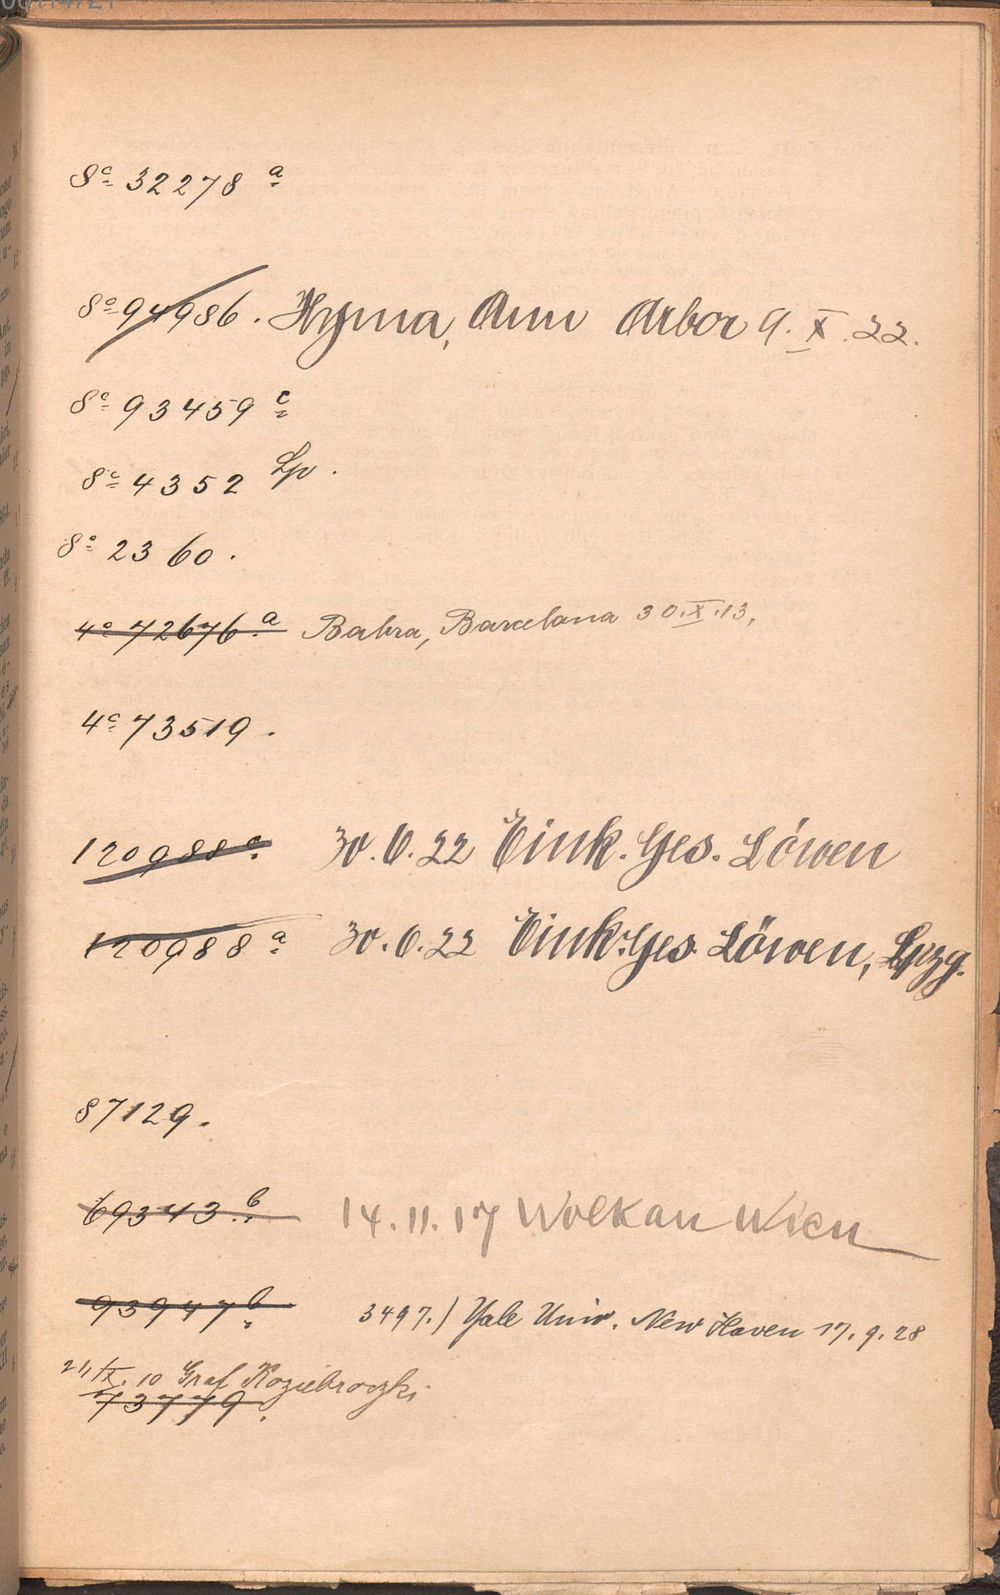 8° 32278 a
8° 94986. Hyma, Ann Arbor 9. X. 22.
8° 93459 c
8° 4352
8° 2360.
4° 72676 a Babra, Barcelona 30. X. 13,
4° 73519.
120988 a 30. 6. 22 Eink. Ges. Löwen
120988 a 30. 6. 22 Eink. Ges. Löwen, Lpzg.
87129.
69343 b 14. 11. 17 Wolkan Wien
93947 b 3497.) Yale Univ. New Haven 17. 9. 28
21/IX. 10 Graf Koziebrodzki
73779.